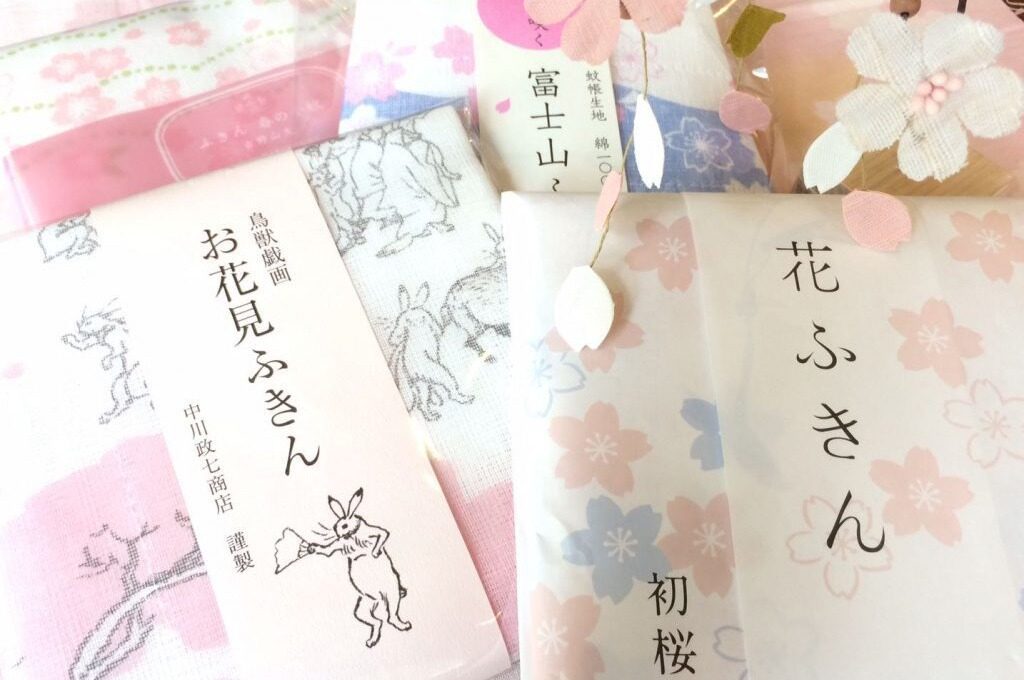 鳥獣戯画
お花見ふきん
中川政七商店 謹製
花ふきん
初桜
咲く
富士山
蚊帳生地 綿一〇
ふきん 桑の